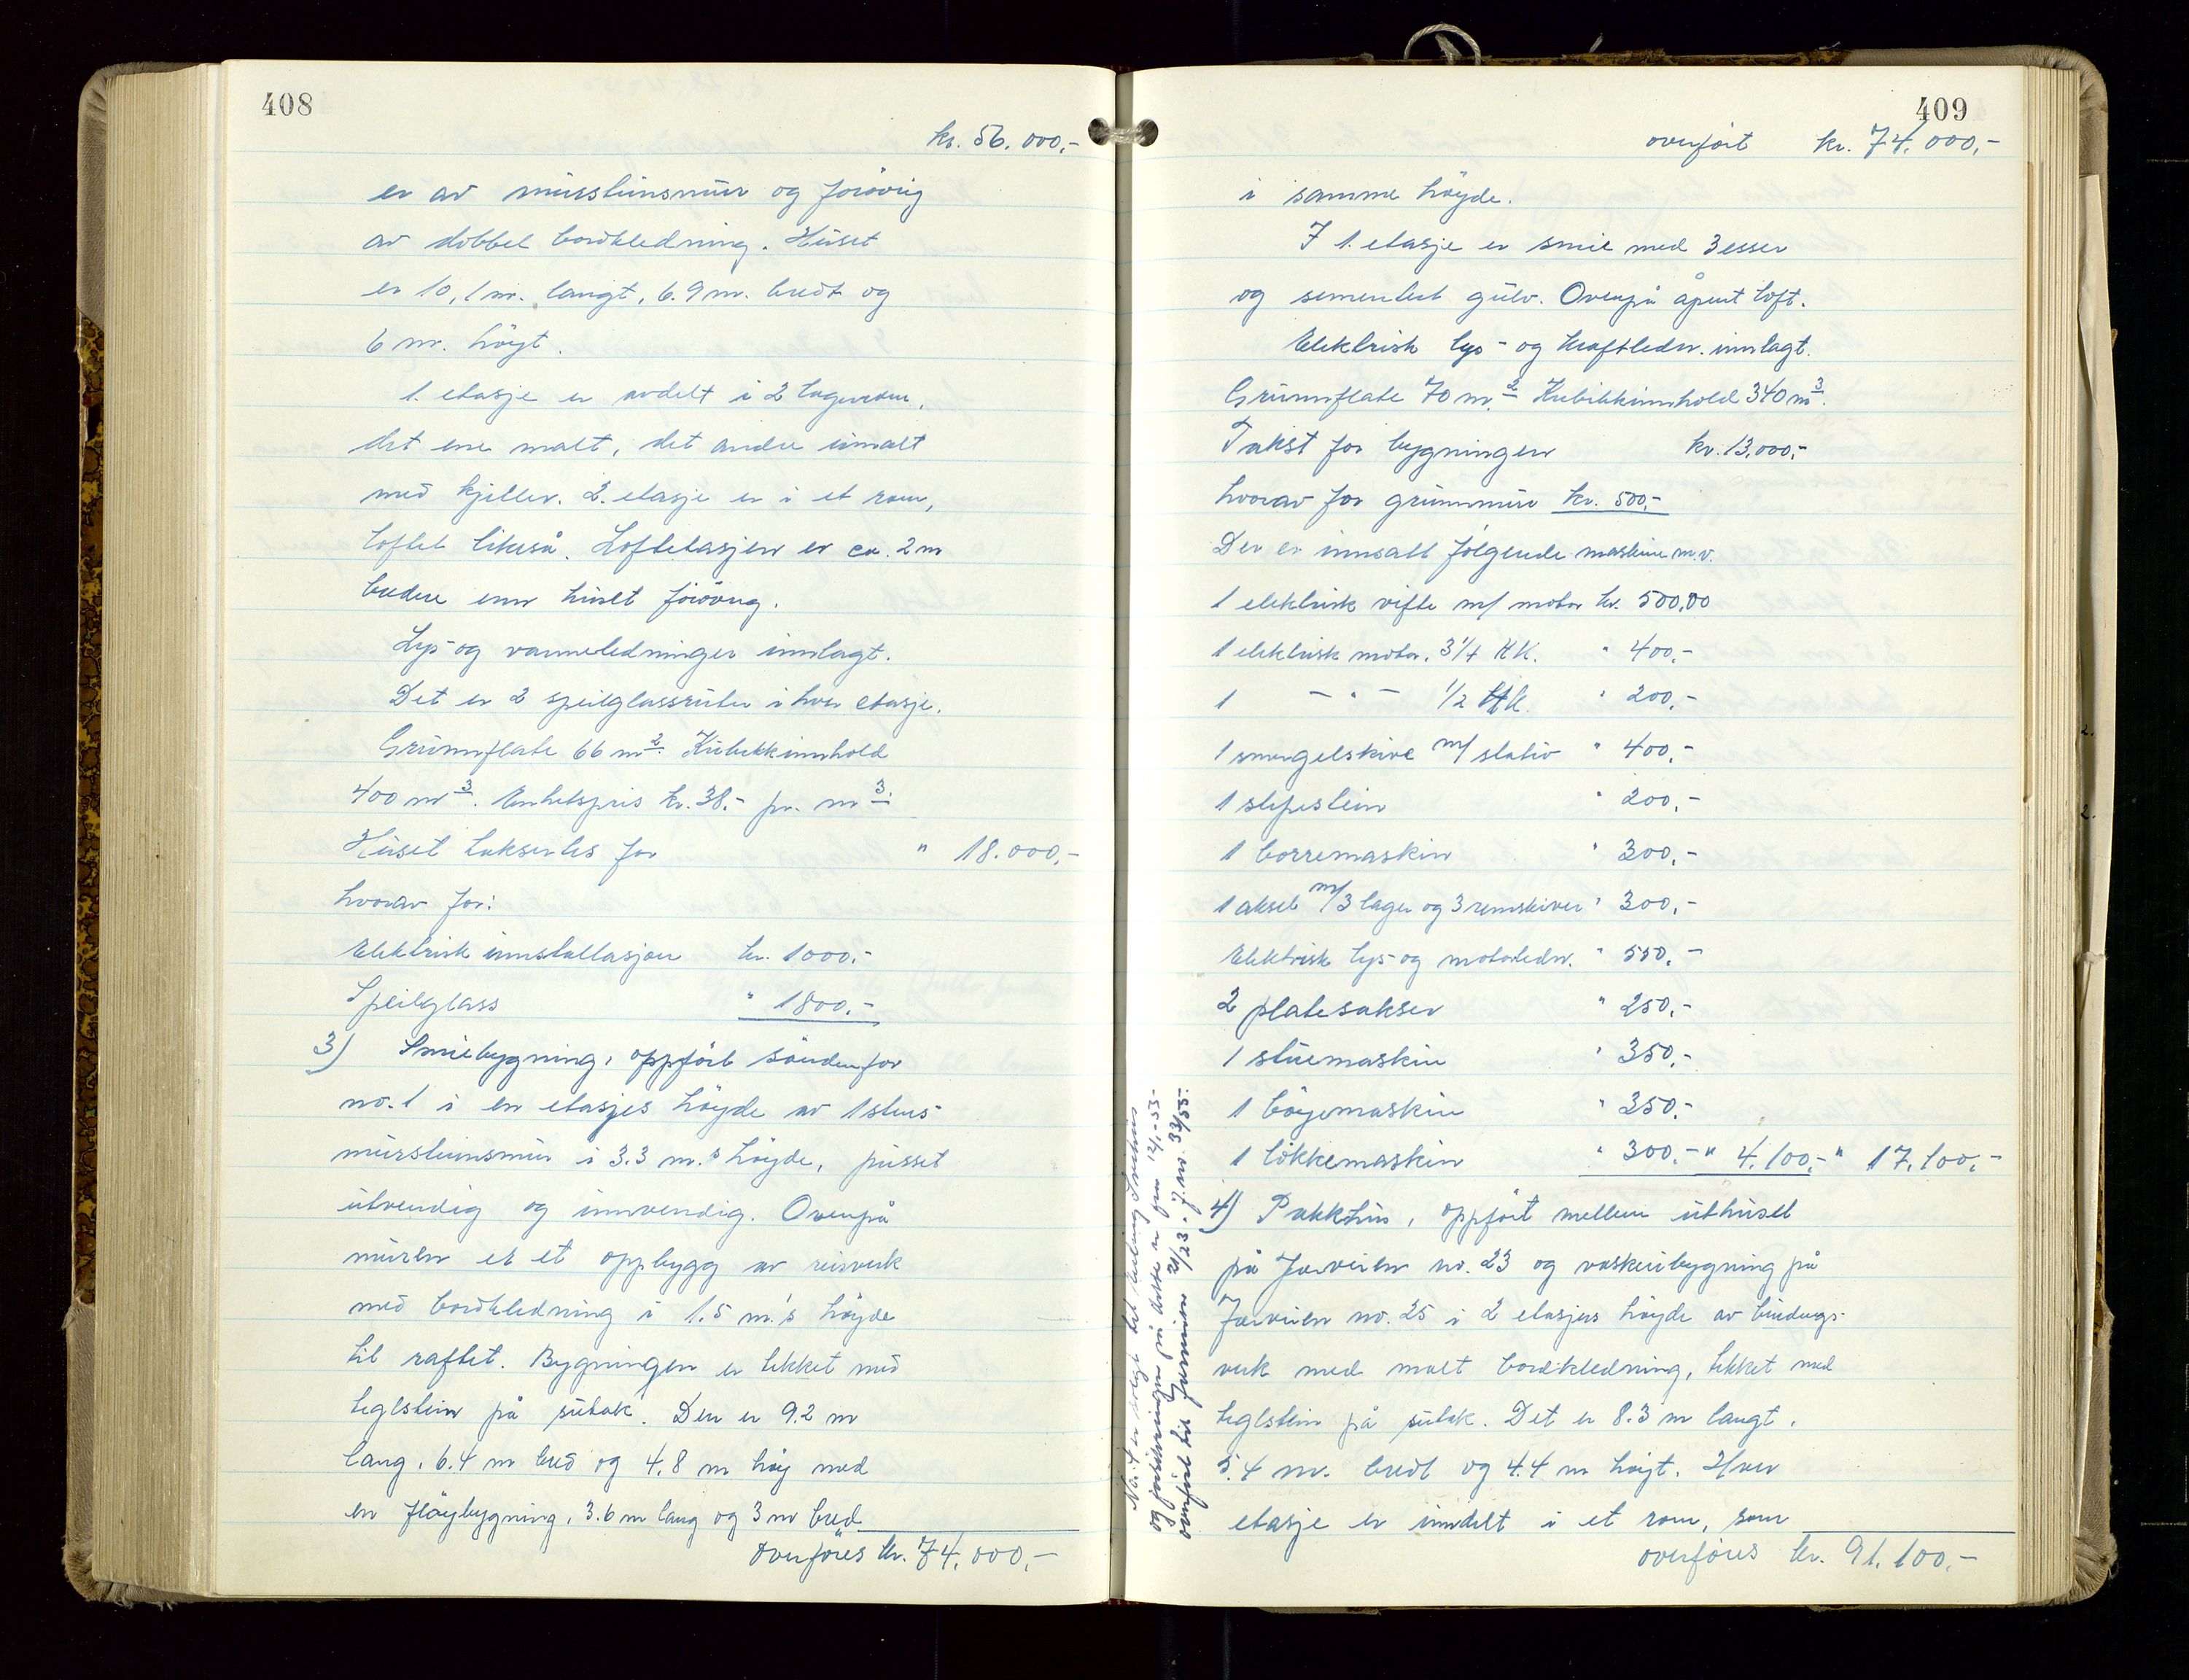 408
kr. 56.000,-
er av mursteinsmur og forøvrig
av dobbel bordkledning. Huset
er 10,1 m. langt, 6.9 m. bredt og
6 m. høyt.
1. etasje er avdelt i 2 lagerrom,
det ene malt, det andre umalt
med kjeller. 2. etasje er i et rom,
loftet likeså. Loftetasjen er ca. 2 m
bredere enn huset forøvrig.
Lys- og varmeledninger innlagt.
Det er 2 speilglassruter i hver etasje.
Grunnflate 66 m². Kubikkinnhold
400 m³. Enhetspris kr. 38.- pr. m³.
Huset takseres for " 18.000,-
hvorav for:
Elektrisk innstallasjon kr. 1000.-
Speilglass " 1800.-
3) Smiebygning, oppført sønnenfor
no. 1 i en etasjes høyde av 1 stens
mursteinsmur i 3.3 m.s høyde, pusset
utvendig og innvendig. Ovenpå
muren er et oppbygg av reisverk
med bordkledning i 1.5 m.'s høyde
til raftet. Bygningen er tekket med
teglstein på sutak. Den er 9.2 m
lang, 6.4 m bred og 4.8 m høy med
en fløybygning, 3.6 m lang og 3 m bred
overføres kr. 74.000,-
409
overført kr. 74.000,-
i samme høyde.
I 1. etasje er smie med 3 esser
og sementert gulv. Ovenpå åpent loft.
Elektrisk lys- og kraftledn. innlagt.
Grunnflate 70 m.² Kubikkinnhold 340 m³.
Takst for bygningen kr. 13.000,-
hvorav for grunnmur kr. 500,-
Der er innsatt følgende maskiner m.v.
1 elektrisk vifte m/ motor kr. 500,00
1 elektrisk motor, 3 1/4 HK. " 400,-
1 - " - 1/2 HK. " 200,-
1 smergelskive m/ stativ " 400,-
1 slipestein " 200,-
1 borremaskin " 300,-
1 aksel m/ 3 lager og 3 remskiver " 300,-
Elektrisk lys- og motorledn. " 550,-
2 platesakser " 250,-
1 stuemaskin " 350,-
1 bøyemaskin " 350,-
1 lokkemaskin " 300,- " 4.100,- " 17.100,-
4) Pakkhus, oppført mellem uthuset
på Jærveien no. 23 og vaskeribygning på
Jærveien no. 25 i 2 etasjers høyde av bindings-
verk med malt bordkledning, tekket med
teglstein på sutak. Det er 8.3 m langt,
5.4 m. bredt og 4.4 m høyt. Hver
etasje er inndelt i et rom, som
overføres kr. 91.100,-
No. 4 er solgt til
og forsikringen på dette er fra 12/1-53
overført til Jærveien 21/23. J. no. 33/53.